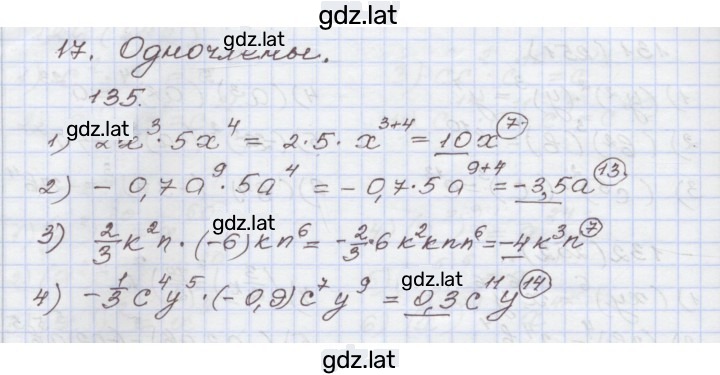 gdz.lat
17. Одночлены.
gdz.lat
135.
gdz.lat
1) 2x³ · 5x⁴ = 2 · 5 · x³⁺⁴ = 10x⁷
2) - 0,7a⁹ · 5a⁴ = - 0,7 · 5a⁹⁺⁴ = -3,5a¹³
gdz.lat
3) 2/3 k²n · (-6) kn⁶ = -2/3 · 6 k²knn⁶ = -4k³n⁷
4) -1/3 c⁴y⁵ · (-0,9)c⁷y⁹ = 0,3c¹¹y¹⁴
gdz.lat
gdz.lat